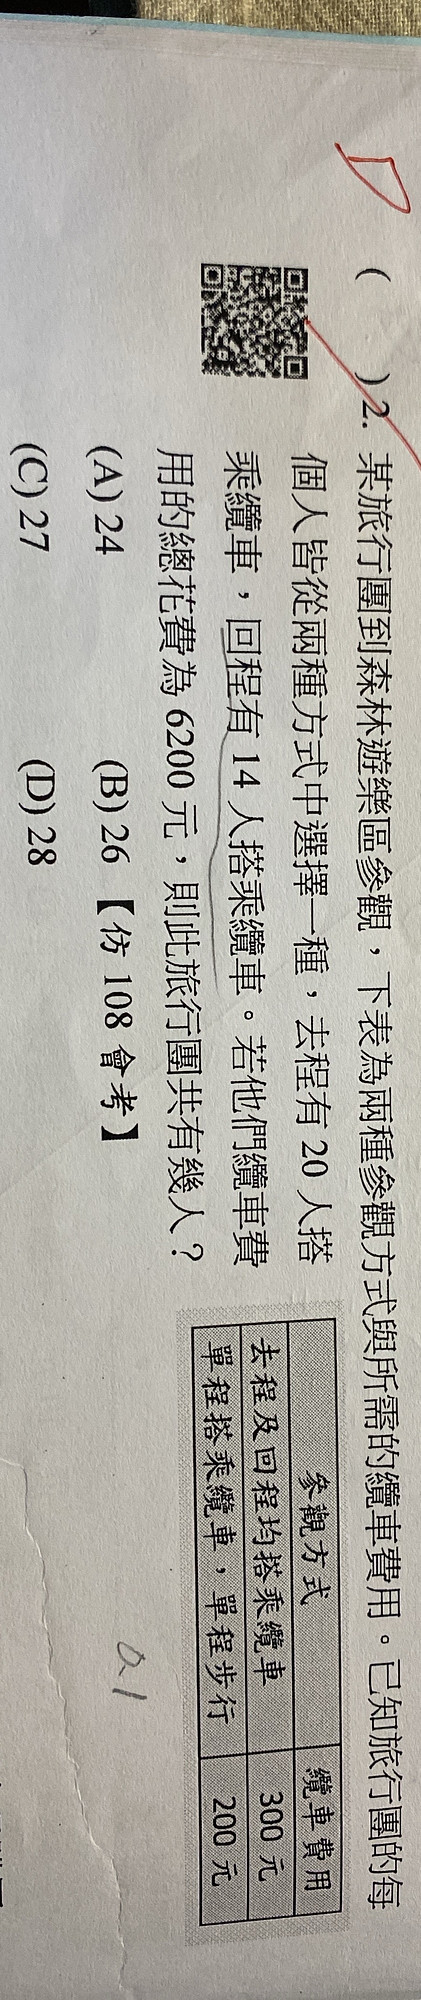 D
(　　)2. 某旅行團到森林遊樂區參觀，下表為兩種參觀方式與所需的纜車費用。已知旅行團的每
個人皆從兩種方式中選擇一種，去程有 20 人搭
乘纜車，回程有 14 人搭乘纜車。若他們纜車費
用的總花費為 6200 元，則此旅行團共有幾人？
(A) 24　　(B) 26【仿 108 會考】
(C) 27　　(D) 28
參觀方式　纜車費用
去程及回程均搭乘纜車　300 元
單程搭乘纜車，單程步行　200 元